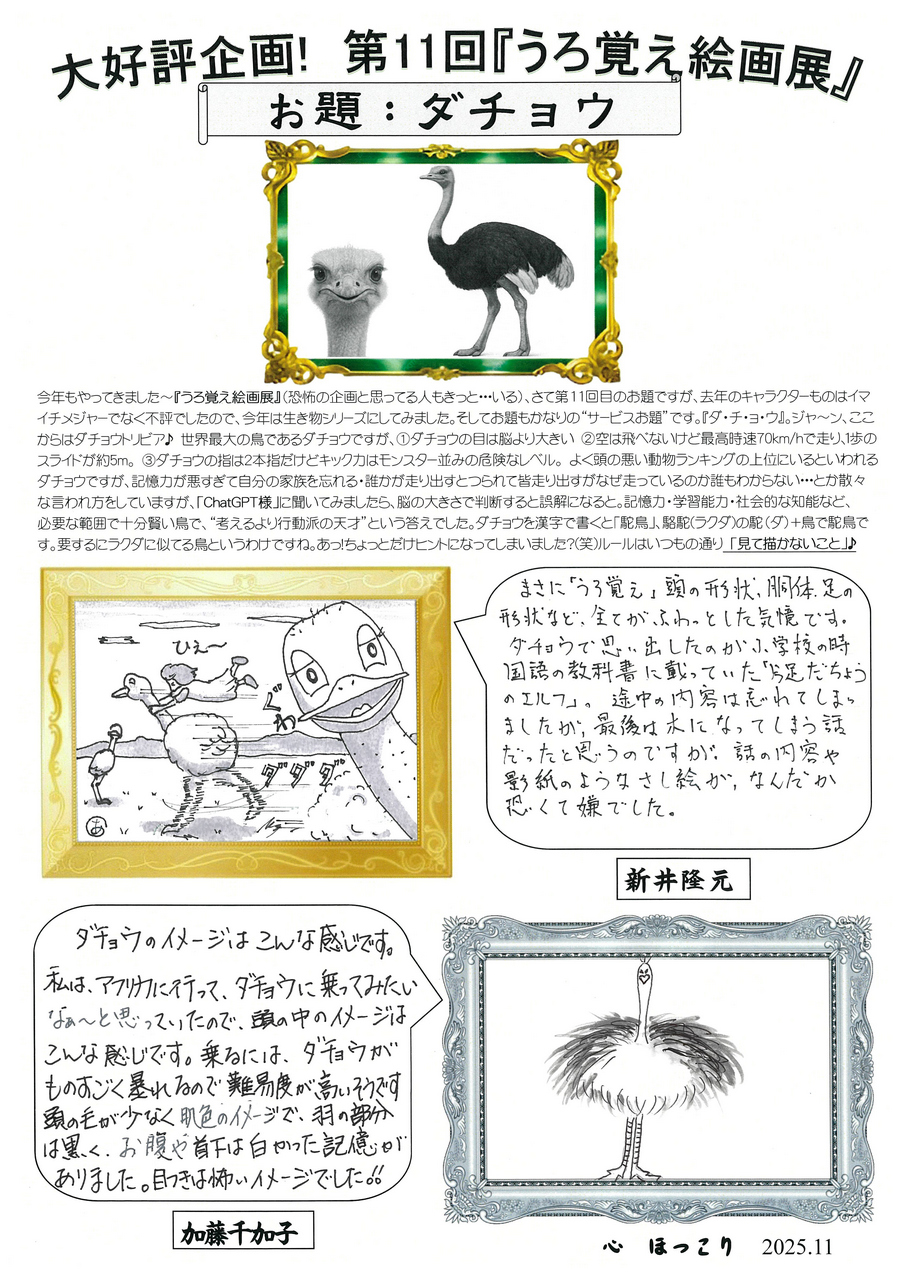 大好評企画! 第11回『うろ覚え絵画展』
お題：ダチョウ
今年もやってきました～『うろ覚え絵画展』(恐怖の企画と思ってる人もきっと…いる)、さて第11回目のお題ですが、去年のキャラクターものはイマ
イチメジャーでなく不評でしたので、今年は生き物シリーズにしてみました。そしてお題もかなりの“サービスお題”です。『ダ・チ・ョ・ウ』。ジャ～ン、ここ
からはダチョウトリビア♪ 世界最大の鳥であるダチョウですが、①ダチョウの目は脳より大きい ②空は飛べないけど最高時速70km/hで走り、1歩の
スライドが約5m。 ③ダチョウの指は2本指だけどキック力はモンスター並みの危険なレベル。 よく頭の悪い動物ランキングの上位にいるといわれる
ダチョウですが、記憶力が悪すぎて自分の家族を忘れる・誰かが走り出すとつられて皆走り出すがなぜ走っているのか誰もわからない…とか散々
な言われ方をしていますが、「ChatGPT様」に聞いてみましたら、脳の大きさで判断すると誤解になると。記憶力・学習能力・社会的な知能など、
必要な範囲で十分賢い鳥で、“考えるより行動派の天才”という答えでした。ダチョウを漢字で書くと「駝鳥」、駱駝(ラクダ)の駝(ダ)+鳥で駝鳥で
す。要するにラクダに似てる鳥というわけですね。あっ!ちょっとだけヒントになってしまいました?(笑)ルールはいつもの通り「見て描かないこと」♪
ひえ～
ぐわっ
ダダダ
あ
まさに「うろ覚え」頭の形状、胴体、足の
形状など、全てがふわっとした気憶です。
ダチョウで思い出したのが小学校の時
国語の教科書に載っていた「片足だちょう
のエルフ」。 途中の内容は忘れてしまっ
ましたが、最後は木になってしまう話
だったと思うのですが、話の内容や
影絵のようなさし絵が、なんだか
恐くて嫌でした。
新井隆元
ダチョウのイメージはこんな感じです。
私は、アフリカに行って、ダチョウに乗ってみたい
なぁ～と思っていたので、頭の中のイメージは
こんな感じです。乗るには、ダチョウが
ものすごく暴れるので難易度が高いそうです
頭の毛が少なく肌色のイメージで、羽の部分
は黒く、お腹や首下は白かった記憶が
ありました。目つきは怖いイメージでした!!
加藤千加子
心 ほっこり 2025.11